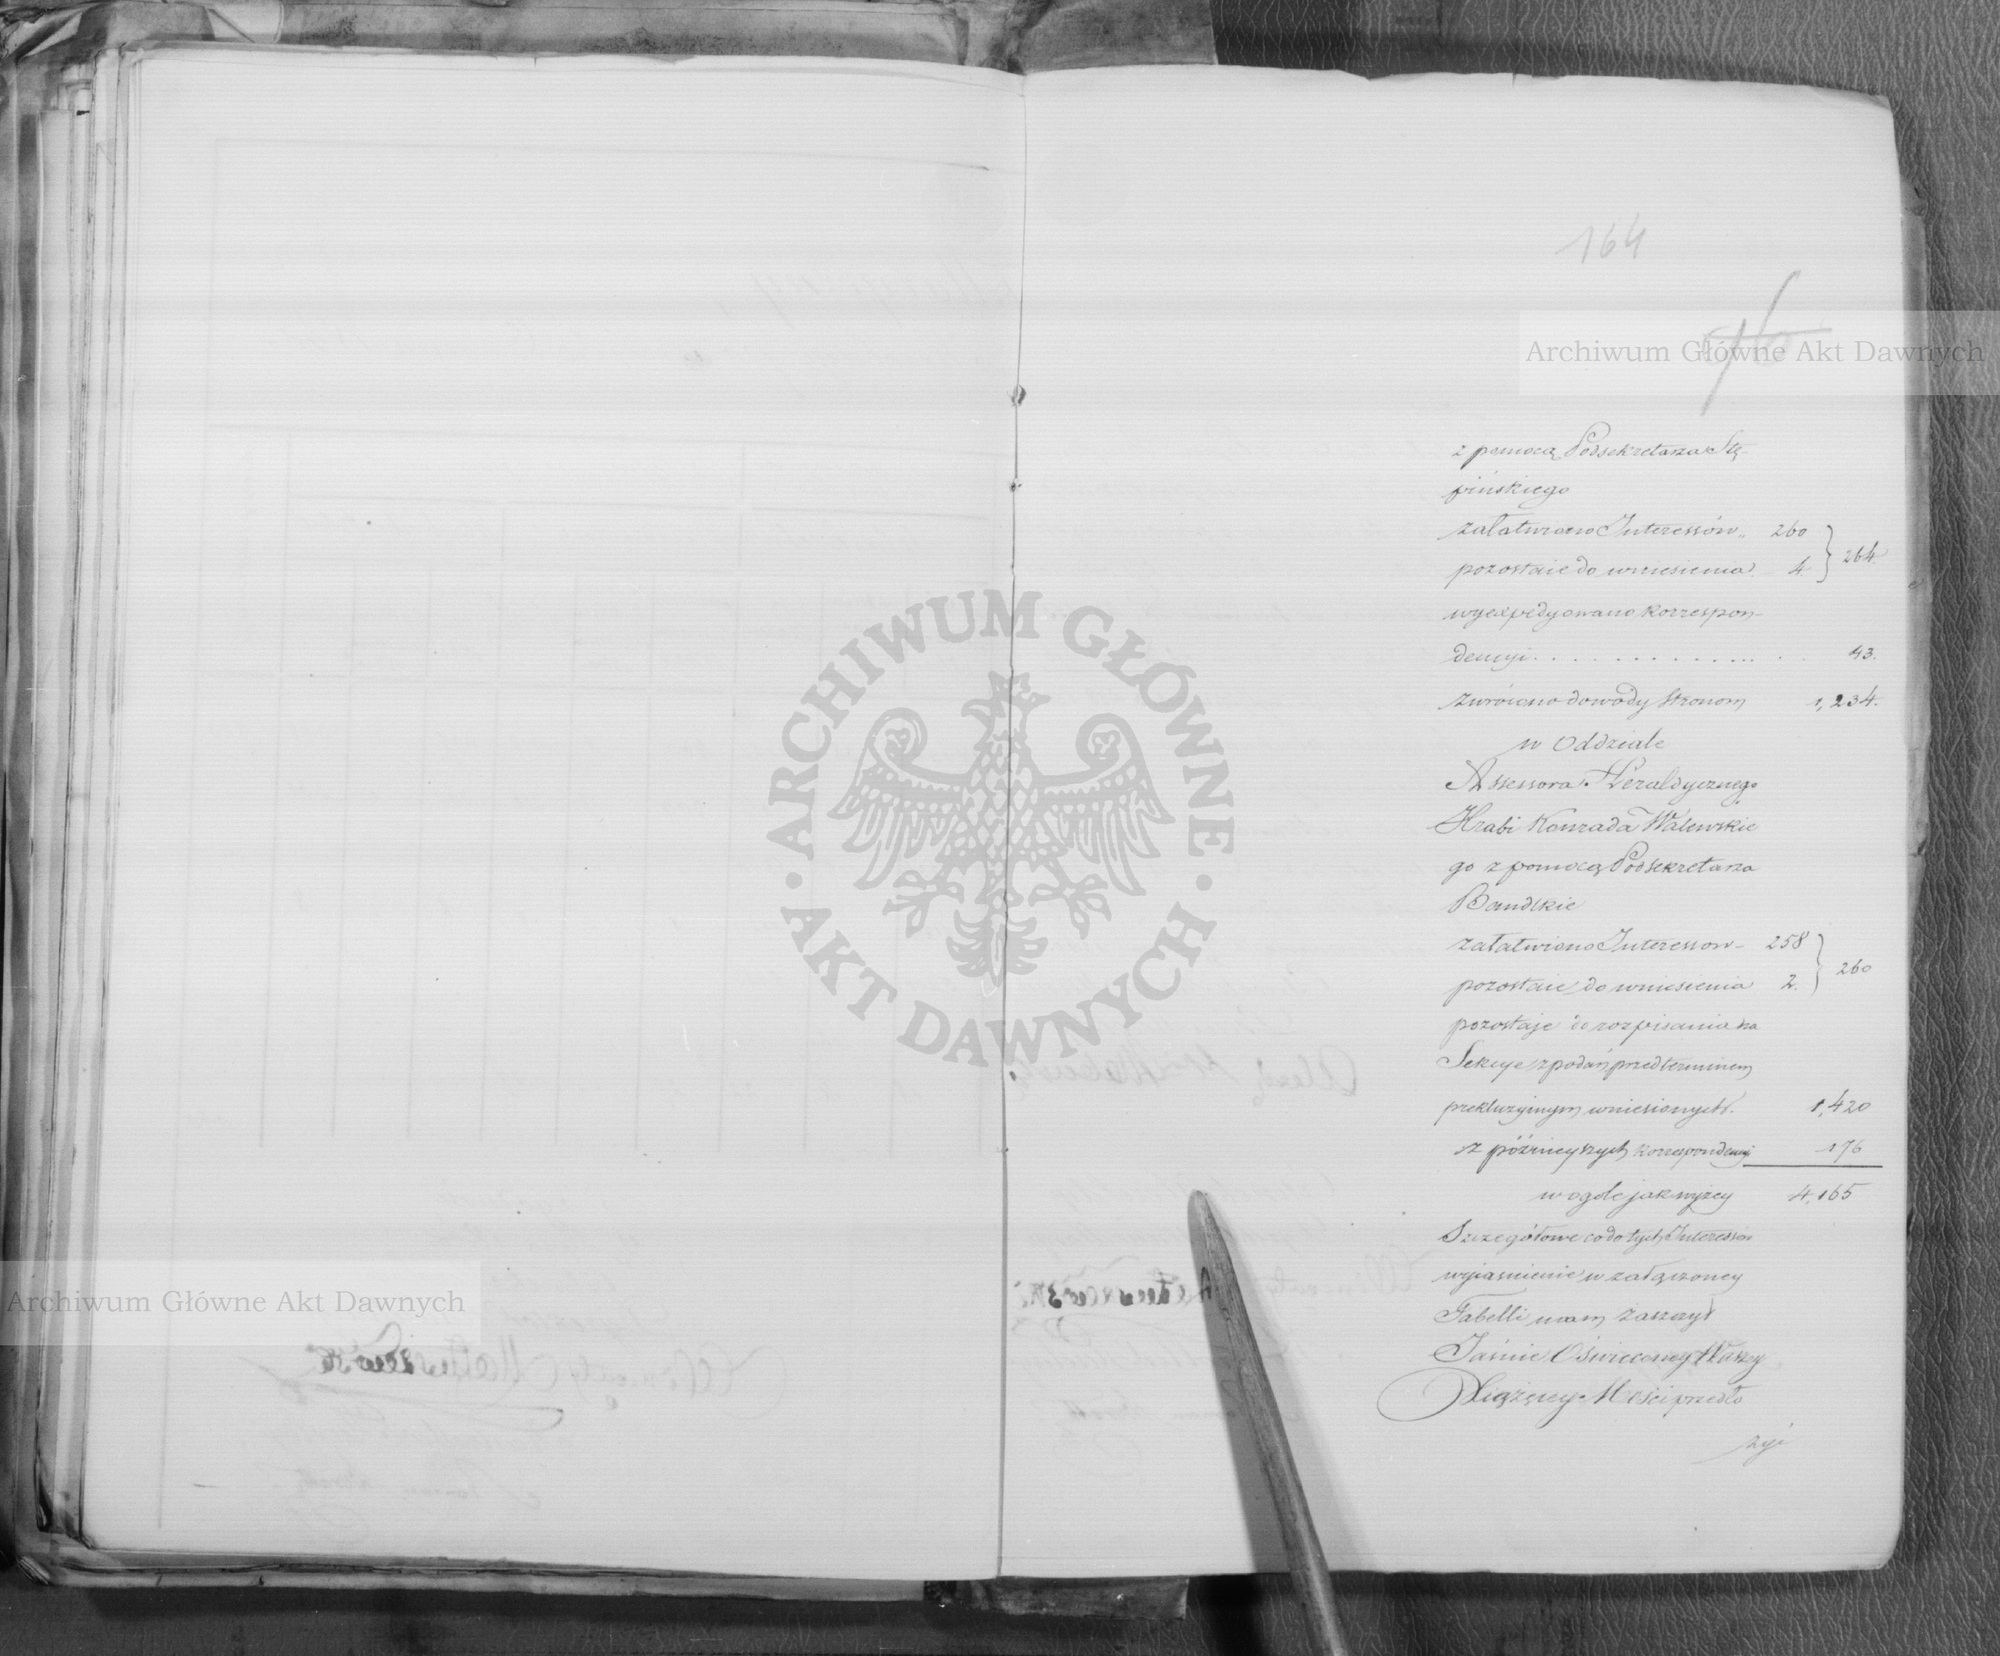 164
Archiwum Główne Akt Dawnych
z pomocą Podsekretarza Stę-
pińskiego
załatwiono Interessów „ 260
pozostaie do wniesienia 4. } 264.
wyexpedyowano korrespon-
dencyi . . . . . . . . . . . . 43.
zwrócono dowody Stronom 1,234.
w Oddziale
Assessora Heraldycznego
Hrabi Konrada Walewskie
go z pomocą Podsekretarza
Bandkie
załatwiono Interessow - 258
pozostaie do wniesienia 2. } 260
pozostaje do rozpisania na
Sekcye z podań przed terminem
prekluzyinym wniesionych. 1,420
z późnieyszych korrespondencyi 176
w ogóle jak wyżey 4,165
Szczegółowe co do tych Interessów
wyiasnienie w załączoney
Tabelli mam zaszczyt
Jaśnie Oświeconey Waszey
Xiążęcey Mości przedło
żyć
ARCHIWUM GŁÓWNE · AKT DAWNYCH ·
Archiwum Główne Akt Dawnych